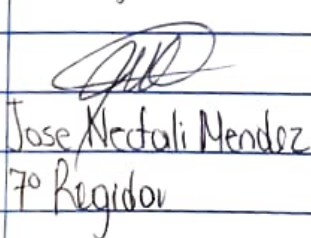 Jose Nectali Mendez
7º Regidor